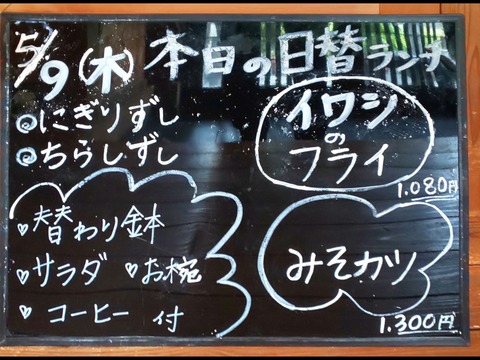 5/9(木) 本日の日替ランチ
◎にぎりずし
◎ちらしずし
イワシ
の
フライ
1.080円
♥替わり鉢
♥サラダ ♥お椀
♥コーヒー 付
みそカツ
1.300円